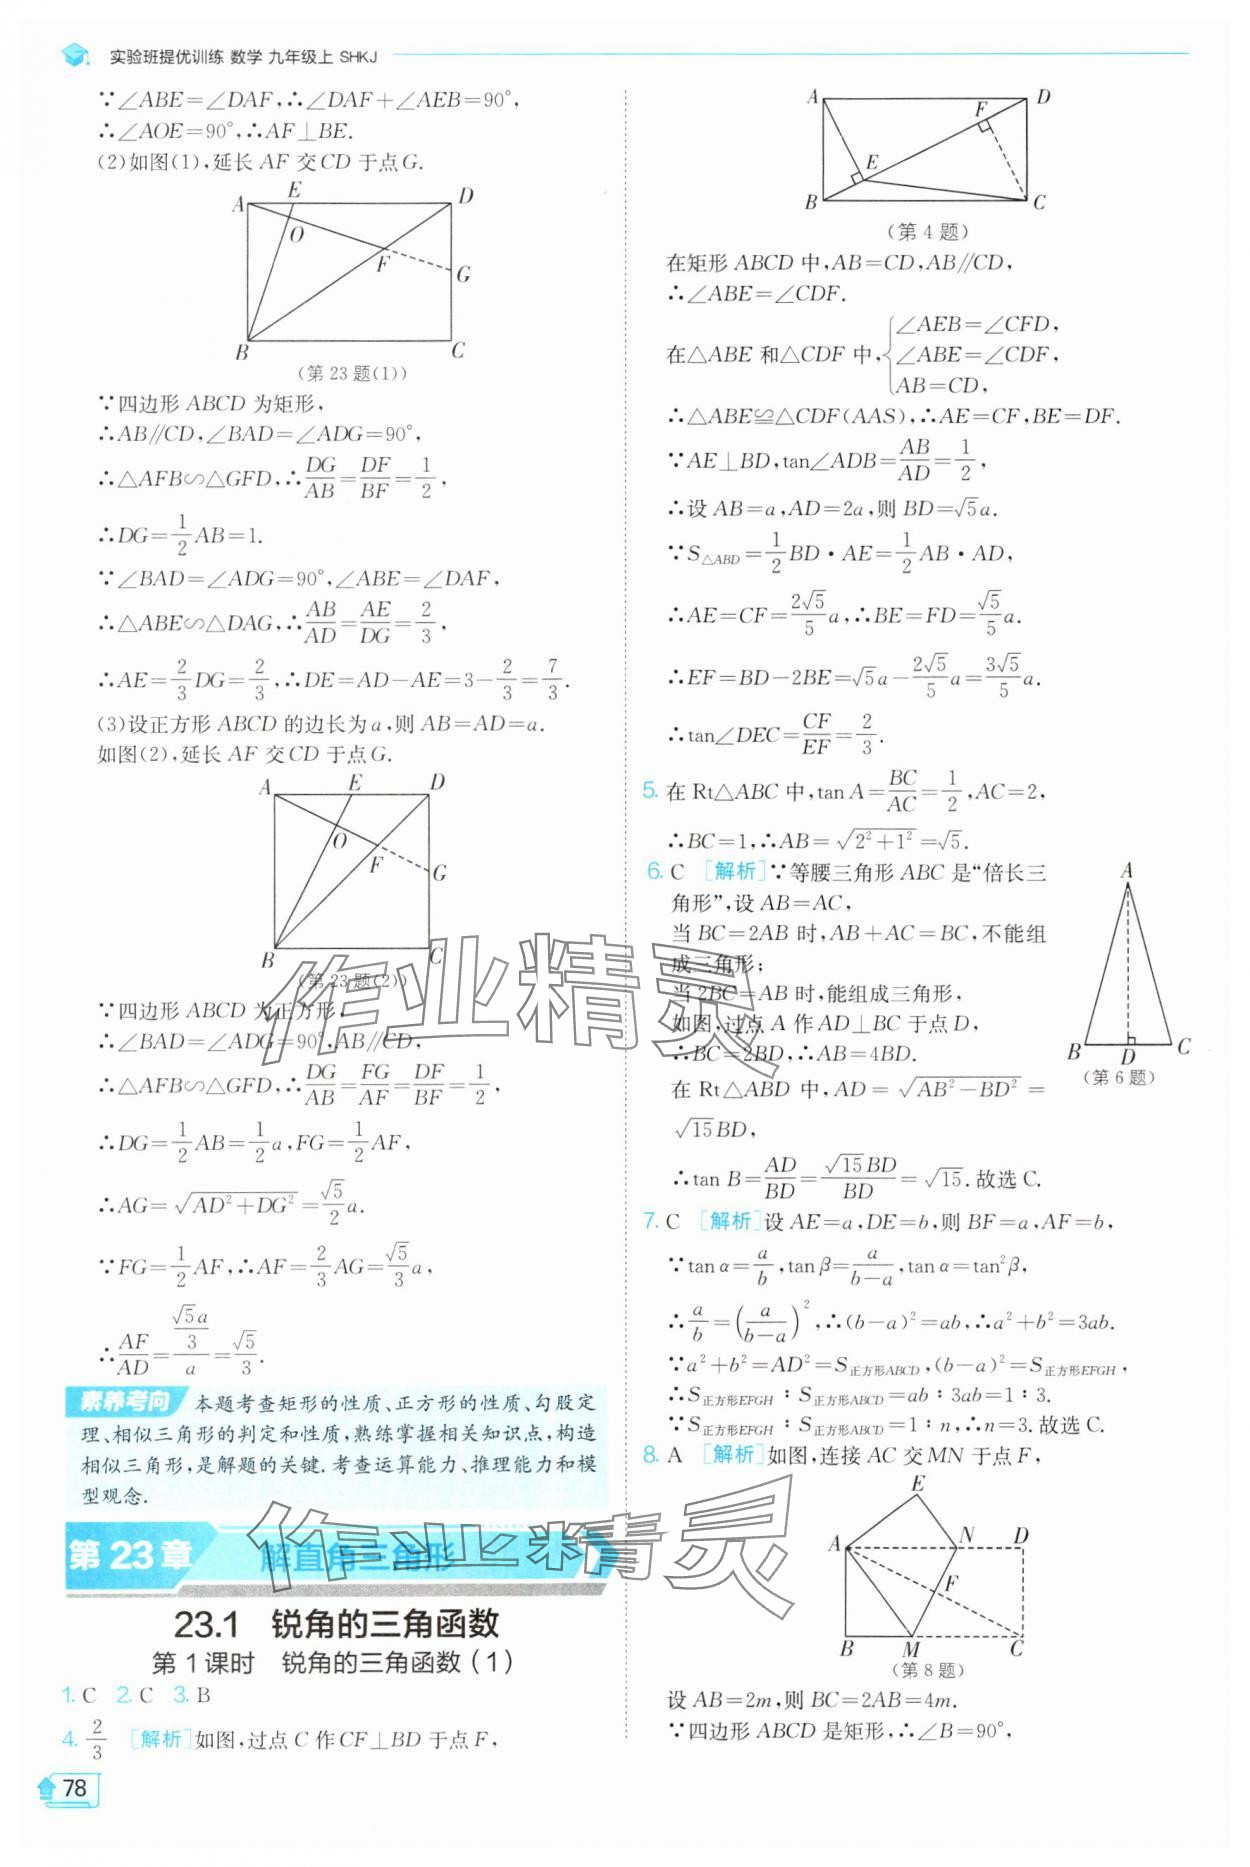 实验班提优训练 数学 九年级上 SHKJ
∵∠ABE=∠DAF,∴∠DAF+∠AEB=90°,
∴∠AOE=90°,∴AF⊥BE.
(2)如图(1),延长 AF 交 CD 于点 G.
A E D
O
F
G
B C
(第 23 题(1))
∵四边形 ABCD 为矩形,
∴AB∥CD,∠BAD=∠ADG=90°,
∴△AFB∽△GFD,∴DG/AB=DF/BF=1/2,
∴DG=1/2AB=1.
∵∠BAD=∠ADG=90°,∠ABE=∠DAF,
∴△ABE∽△DAG,∴AB/AD=AE/DG=2/3,
∴AE=2/3DG=2/3,∴DE=AD−AE=3−2/3=7/3.
(3)设正方形 ABCD 的边长为 a,则 AB=AD=a.
如图(2),延长 AF 交 CD 于点 G.
A E D
O
F
G
B C
(第 23 题(2))
∵四边形 ABCD 为正方形,
∴∠BAD=∠ADG=90°,AB∥CD,
∴△AFB∽△GFD,∴DG/AB=FG/AF=DF/BF=1/2,
∴DG=1/2AB=1/2a,FG=1/2AF,
∴AG=√(AD²+DG²)=√5/2a.
∵FG=1/2AF,∴AF=2/3AG=√5/3a,
∴AF/AD=(√5a/3)/a=√5/3.
素养考向 本题考查矩形的性质、正方形的性质、勾股定
理、相似三角形的判定和性质,熟练掌握相关知识点,构造
相似三角形,是解题的关键.考查运算能力、推理能力和模
型观念.
第 23 章 解直角三角形
23.1 锐角的三角函数
第 1 课时 锐角的三角函数(1)
1. C 2. C 3. B
4. 2/3 [解析]如图,过点 C 作 CF⊥BD 于点 F,
78
A D
F
E
B C
(第 4 题)
在矩形 ABCD 中,AB=CD,AB∥CD,
∴∠ABE=∠CDF.
在△ABE 和△CDF 中,{∠AEB=∠CFD,
∠ABE=∠CDF,
AB=CD,
∴△ABE≌△CDF(AAS),∴AE=CF,BE=DF.
∵AE⊥BD,tan∠ADB=AB/AD=1/2,
∴设 AB=a,AD=2a,则 BD=√5a.
∵S△ABD=1/2BD·AE=1/2AB·AD,
∴AE=CF=2√5/5a,∴BE=FD=√5/5a.
∴EF=BD−2BE=√5a−2√5/5a=3√5/5a.
∴tan∠DEC=CF/EF=2/3.
5. 在 Rt△ABC 中,tan A=BC/AC=1/2,AC=2,
∴BC=1,∴AB=√(2²+1²)=√5.
6. C [解析]∵等腰三角形 ABC 是“倍长三
角形”,设 AB=AC,
当 BC=2AB 时,AB+AC=BC,不能组
成三角形;
当 2BC=AB 时,能组成三角形,
如图,过点 A 作 AD⊥BC 于点 D,
∴BC=2BD,∴AB=4BD.
在 Rt△ABD 中,AD=√(AB²−BD²)=
√15BD,
∴tan B=AD/BD=√15BD/BD=√15.故选 C.
A
B D C
(第 6 题)
7. C [解析]设 AE=a,DE=b,则 BF=a,AF=b,
∵tan α=a/b,tan β=a/(b−a),tan α=tan²β,
∴a/b=(a/(b−a))²,∴(b−a)²=ab,∴a²+b²=3ab.
∵a²+b²=AD²=S正方形ABCD,(b−a)²=S正方形EFGH,
∴S正方形EFGH∶S正方形ABCD=ab∶3ab=1∶3.
∵S正方形EFGH∶S正方形ABCD=1∶n,∴n=3.故选 C.
8. A [解析]如图,连接 AC 交 MN 于点 F,
E
A N D
F
B M C
(第 8 题)
设 AB=2m,则 BC=2AB=4m.
∵四边形 ABCD 是矩形,∴∠B=90°,
作业精灵
作业精灵